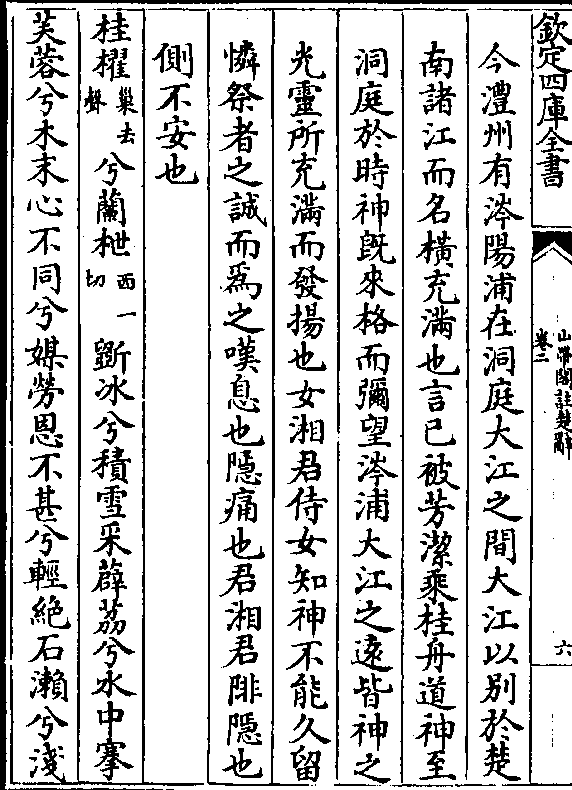 欽定四庫全書
山帶閣註楚辭
卷二
六
今澧州有涔陽浦在洞庭大江之間大江以别於楚
南諸江而名橫充滿也言已被芳潔乘桂舟道神至
洞庭於時神既來格而彌望涔浦大江之遠皆神之
光靈所充滿而發揚也女湘君侍女知神不能久留
憐祭者之誠而爲之嘆息也隱痛也君湘君陫隱也
側不安也
桂櫂巢去聲兮蘭枻西一切斵冰兮積雪采薜荔兮水中搴
芙蓉兮木末心不同兮媒勞恩不甚兮輕絶石瀨兮淺